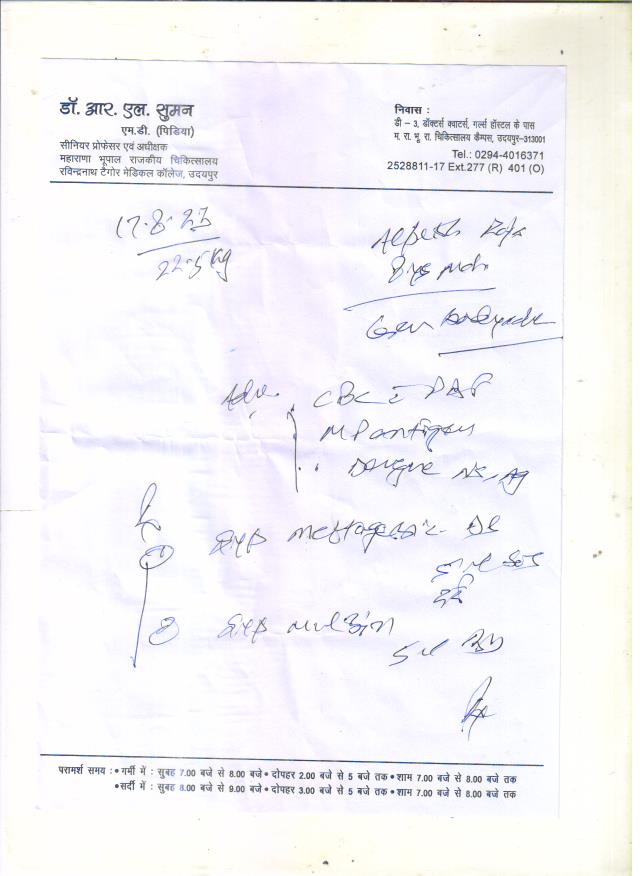 डॉ. आर. एल. सुमन
एम.डी. (पिडिया)
सीनियर प्रोफेसर एवं अधीक्षक
महाराणा भूपाल राजकीय चिकित्सालय
रविन्द्रनाथ टैगोर मेडिकल कॉलेज, उदयपुर
निवास :
डी – 3, डॉक्टर्स क्वाटर्स, गर्ल्स हॉस्टल के पास
म. रा. भू. रा. चिकित्सालय कैम्पस, उदयपुर–313001
Tel.: 0294-4016371
2528811-17 Ext.277 (R) 401 (O)
17.8.23
22.5kg
Adv.
CBC
MP antigen
Dengue NS1 Ag
Syp
DS
5 ml SOS
Syp
5 ml
परामर्श समय : • गर्मी में : सुबह 7.00 बजे से 8.00 बजे • दोपहर 2.00 बजे से 5 बजे तक • शाम 7.00 बजे से 8.00 बजे तक
• सर्दी में : सुबह 8.00 बजे से 9.00 बजे • दोपहर 3.00 बजे से 5 बजे तक • शाम 7.00 बजे से 8.00 बजे तक